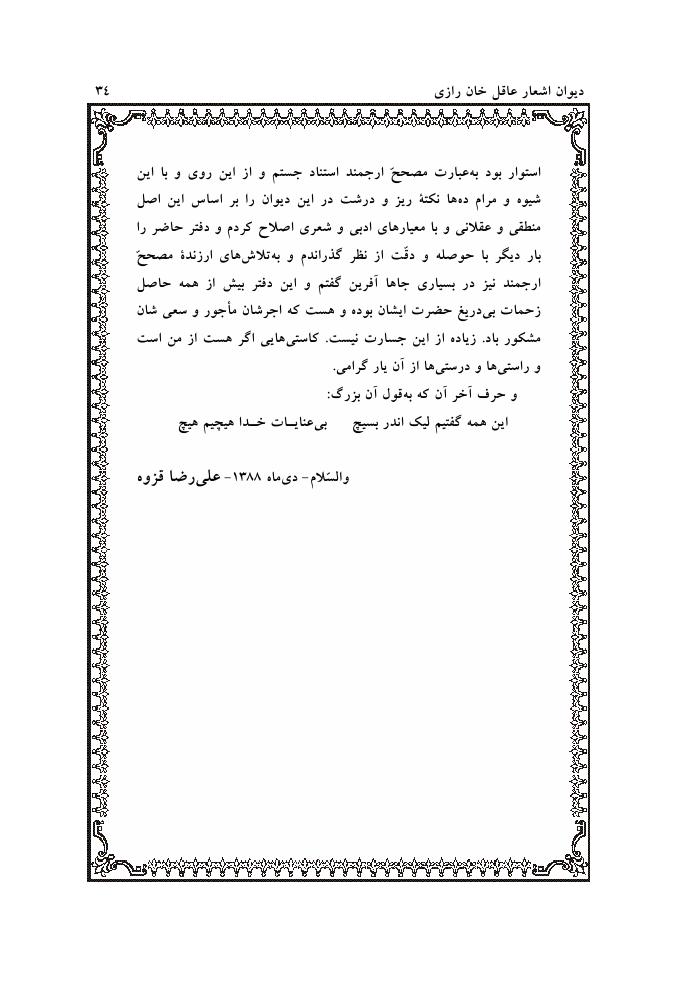 دیوان اشعار عاقل خان رازی ۳٤
استوار بود به‌عبارت مصححّ ارجمند استناد جستم و از این روی و با این
شیوه و مرام ده‌ها نکتهٔ ریز و درشت در این دیوان را بر اساس این اصل
منطقی و عقلانی و با معیارهای ادبی و شعری اصلاح کردم و دفتر حاضر را
بار دیگر با حوصله و دقّت از نظر گذراندم و به‌تلاش‌های ارزندهٔ مصححّ
ارجمند نیز در بسیاری جاها آفرین گفتم و این دفتر بیش از همه حاصل
زحمات بی‌دریغ حضرت ایشان بوده و هست که اجرشان مأجور و سعی شان
مشکور باد. زیاده از این جسارت نیست. کاستی‌هایی اگر هست از من است
و راستی‌ها و درستی‌ها از آن یار گرامی.
و حرف آخر آن که به‌قول آن بزرگ:
این همه گفتیم لیک اندر بسیچ بی‌عنایـات خـدا هیچیم هیچ
والسّلام- دی‌ماه ۱۳۸۸- علی‌رضا قزوه